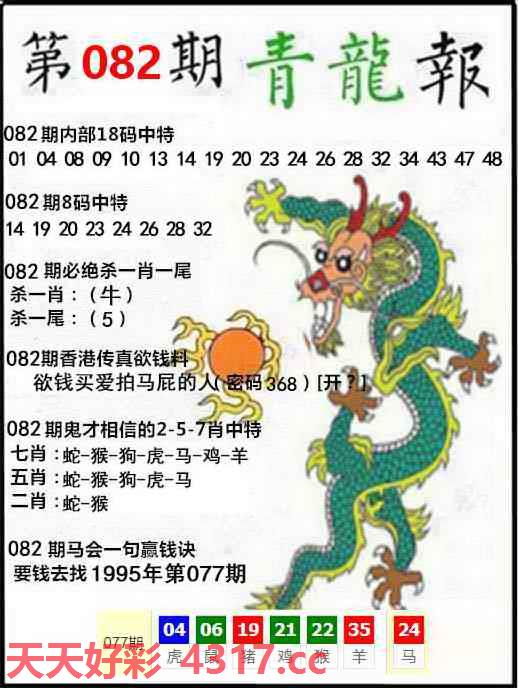 第082期 青龍報
082期内部18码中特
01 04 08 09 10 13 14 19 20 23 24 26 28 32 34 43 47 48
082期8码中特
14 19 20 23 24 26 28 32
082 期必绝杀一肖一尾
杀一肖：（牛）
杀一尾：（5）
082期香港传真欲钱料
欲钱买爱拍马屁的人(密码368）[开？]
082期鬼才相信的2-5-7肖中特
七肖：蛇-猴-狗-虎-马-鸡-羊
五肖：蛇-猴-狗-虎-马
二肖：蛇-猴
082 期马会一句赢钱诀
要钱去找1995年第077期
077期 04 06 19 21 22 35 24
虎 鼠 猪 鸡 猴 羊 马
天天好彩 4317.cc